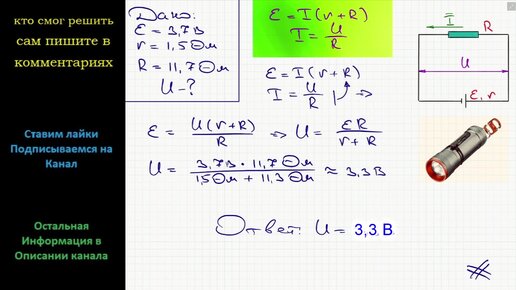 кто смог решить
сам пишите в
комментариях
Ставим лайки
Подписываемся на
Канал
Остальная
Информация в
Описании канала
Дано:
ε = 3,7В
r = 1,5 Ом
R = 11,7 Ом
U - ?
ε = I(r + R)
I = U/R
ε = I(r + R)
I = U/R ⇒
ε = U(r + R)/R ⇒ U = εR/(r + R)
U = 3,7В · 11,7 Ом/(1,5 Ом + 11,3 Ом) ≈ 3,3В
Ответ: U = 3,3 В
I
R
U
ε, r